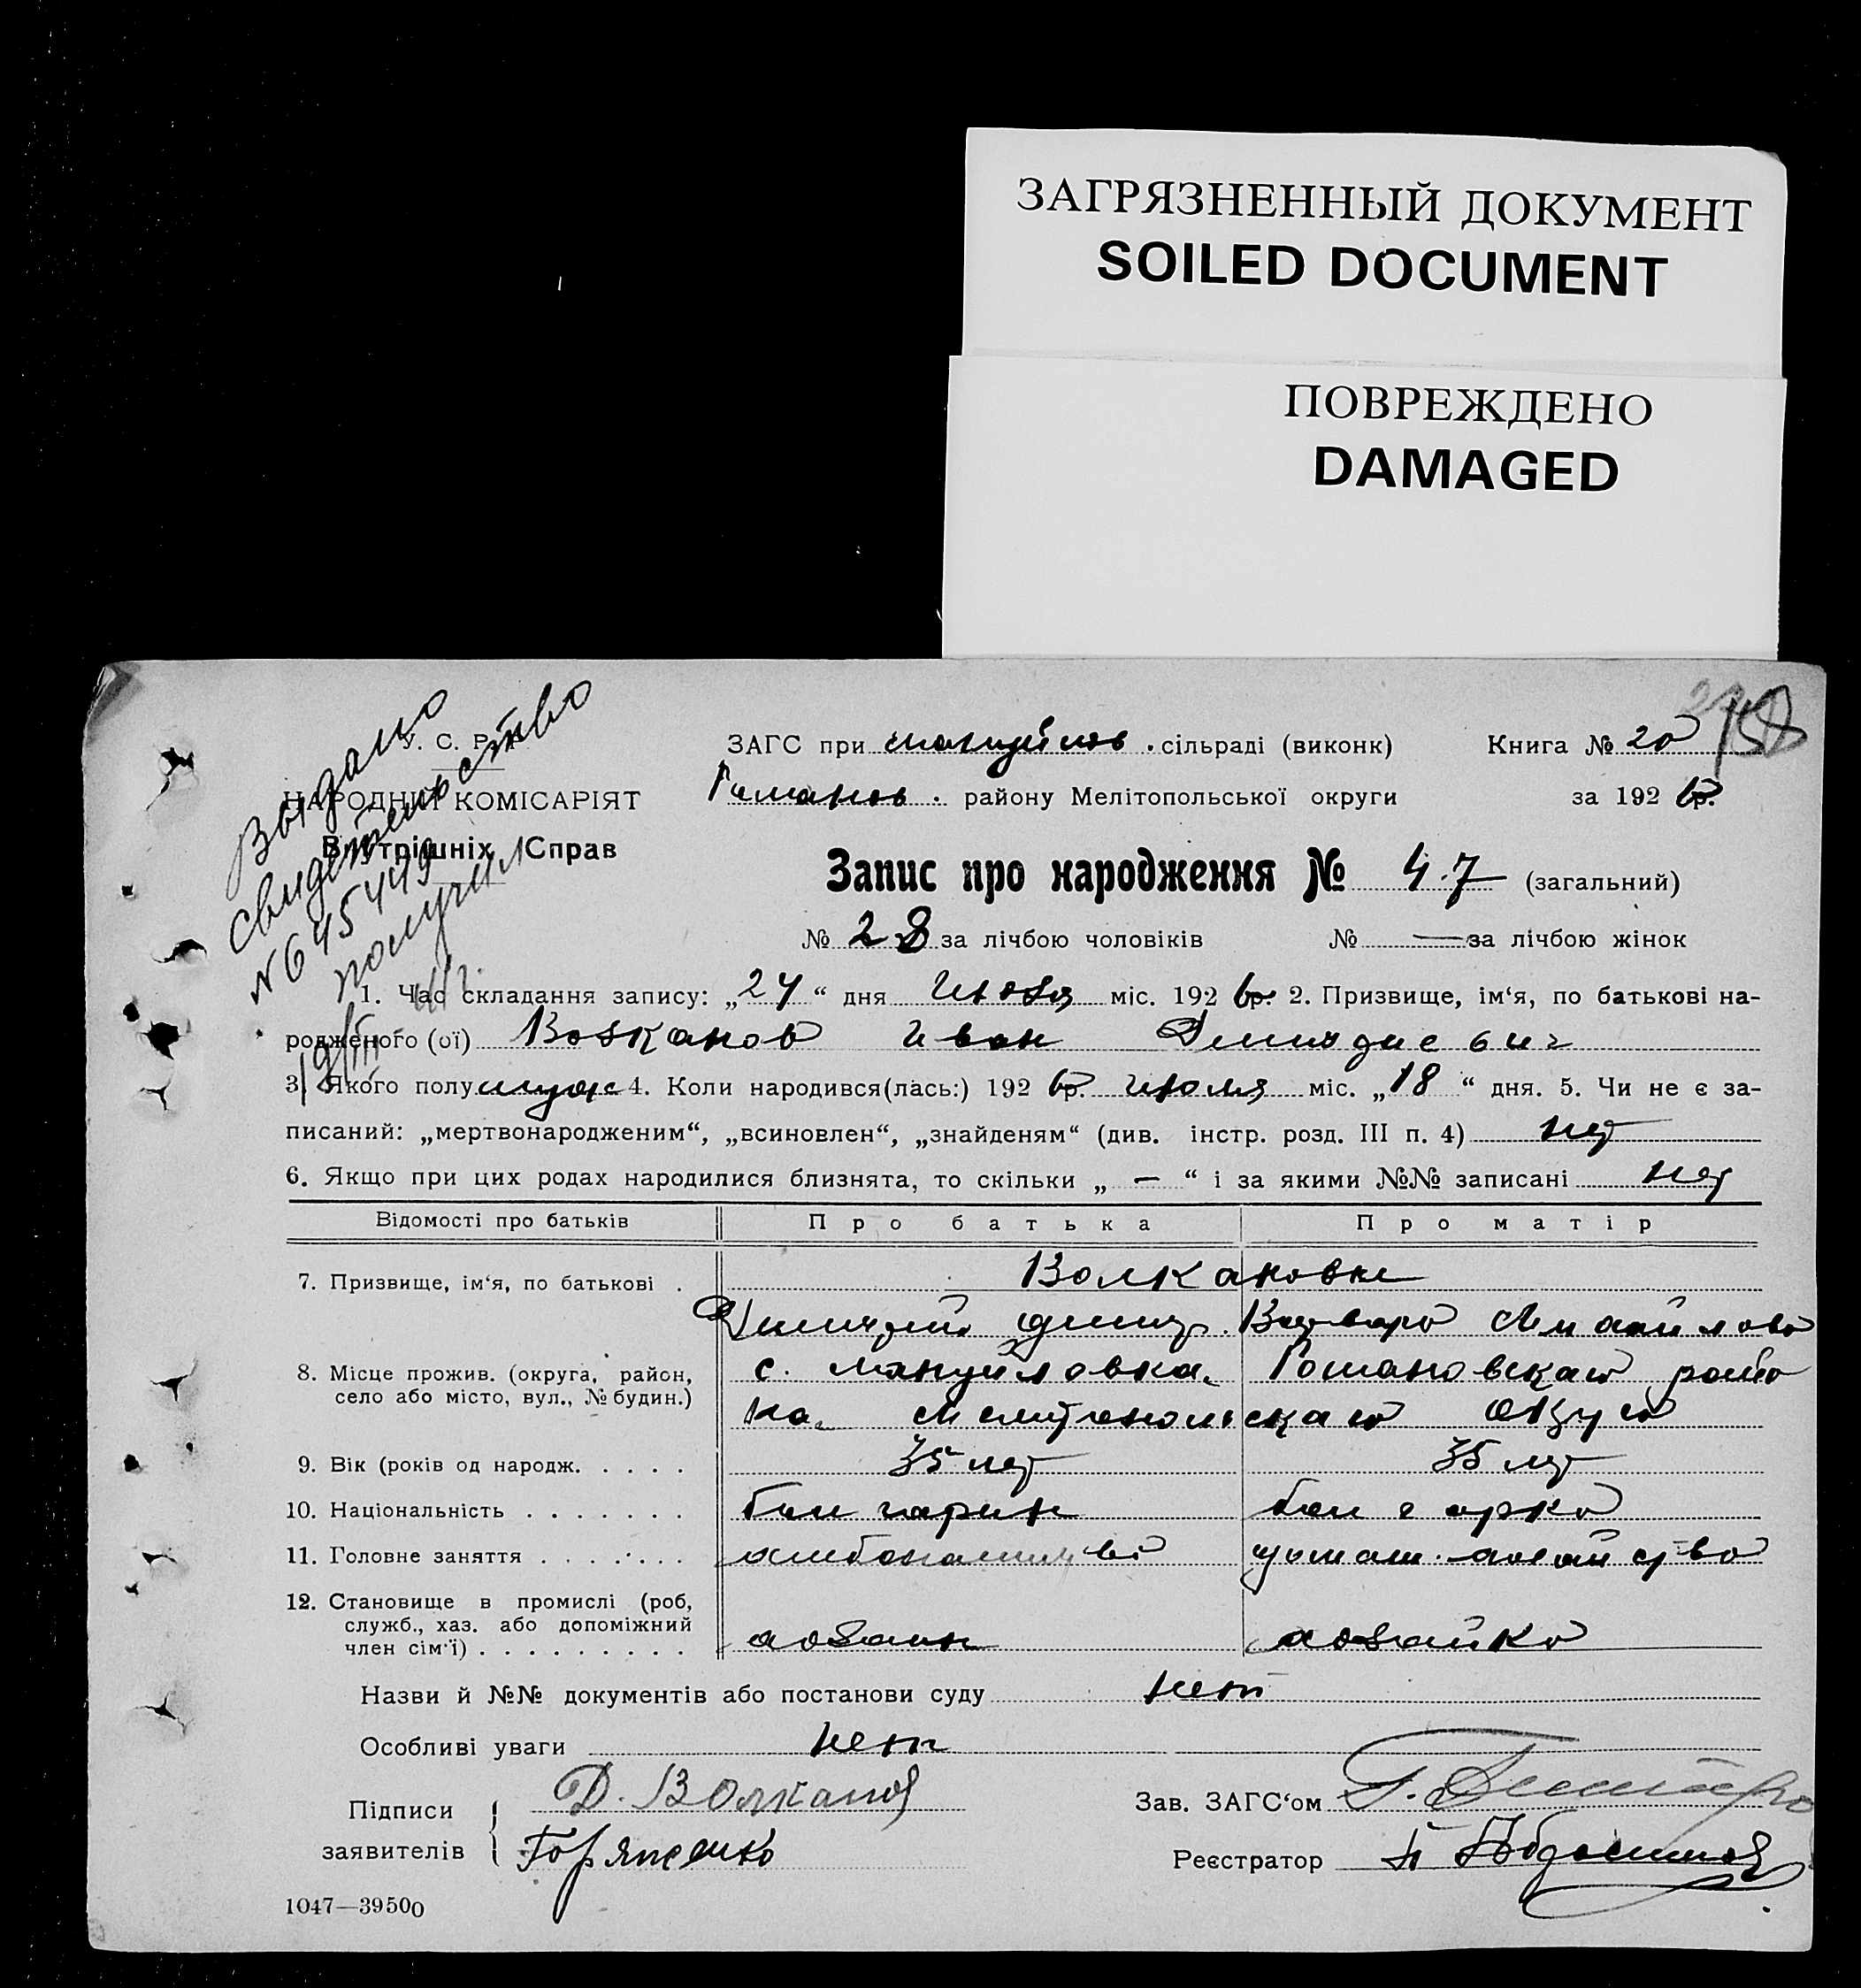 ЗАГРЯЗНЕННЫЙ ДОКУМЕНТ
SOILED DOCUMENT
ПОВРЕЖДЕНО
DAMAGED
Выдано
свидетельство
N 645449
получил
19/III
У. С. Р. Р.
НАРОДНИЙ КОМІСАРІЯТ
Внутрішніх Справ
ЗАГС при мануйлов. сільраді (виконк) Книга № 20
Романов. району Мелітопольської округи за 192 6 р.
Запис про народження № 47 (загальний)
№ 28 за лічбою чоловіків № — за лічбою жінок
1. Час складання запису: „24“ дня Июля міс. 192 6 р. 2. Призвище, ім‘я, по батькові на-
родженого (ої) Волканов Иван Дмитриевич
3. Якого полу муж 4. Коли народився(лась:) 192 6 р. июля міс. „18“ дня. 5. Чи не є за-
писаний: „мертвонародженим“, „всиновлен“, „знайденям“ (див. інстр. розд. III п. 4) нет
6. Якщо при цих родах народилися близнята, то скільки „ — “ і за якими №№ записані нет
Відомості про батьків Про батька Про матір
7. Призвище, ім‘я, по батькові . Волкановы
Дмитрий Дмитр. Варвара Михайлова
8. Місце прожив. (округа, район, село або місто, вул., № будин.) с. мануйловка, Романовскаго райо
на, Мелитопольскаго округа
9. Вік (років од народж. . . . . 35 лет 35 лет
10. Національність . . . . . . . болгарин болгарка
11. Головне заняття . . . . . . . хлебопашество домаш. хозяйство
12. Становище в промислі (роб, служб., хаз. або допоміжний член сім‘ї) . . . . . . . . . хозяин хозяйка
Назви й №№ документів або постанови суду нет
Особливі уваги нет
Підписи Д. Волканов Зав. ЗАГС‘ом
заявителів Горяченко Реєстратор
1047—39500